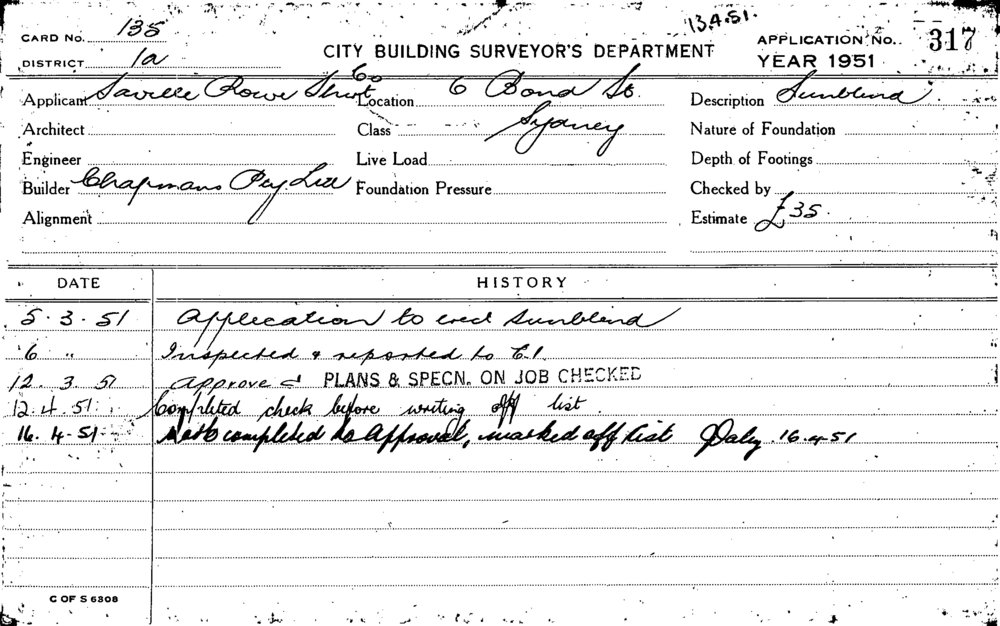 13.4.51.
CARD No. 135
CITY BUILDING SURVEYOR'S DEPARTMENT
APPLICATION No. 317
DISTRICT 1a
YEAR 1951
Applicant Saville Rowe Shirt Co
Location 6 Bond St.
Sydney
Description Sunblind
Architect
Class
Nature of Foundation
Engineer
Live Load
Depth of Footings
Builder Chapmans Pty Ltd
Foundation Pressure
Checked by
Alignment
Estimate £35.
DATE HISTORY
5.3.51 Application to erect Sunblind
6 " Inspected & reported to C.I.
12.3.51 Approved PLANS & SPECN. ON JOB CHECKED
12.4.51. Completed check before writing off list.
16.4.51. completed to Approval, marked off list Daly 16.4.51
C OF S 6308